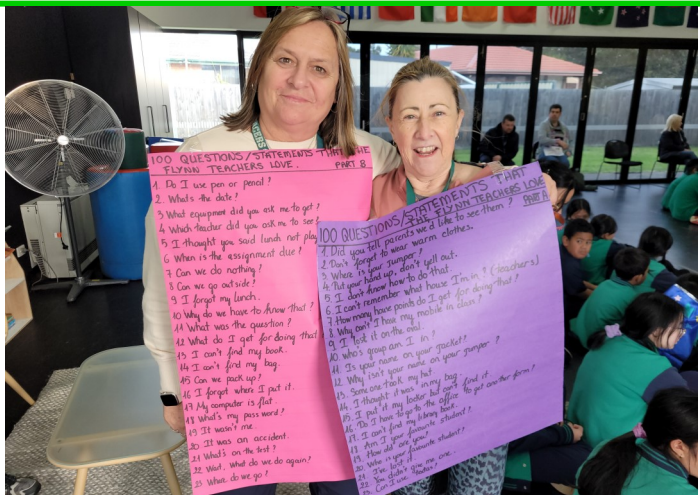 100 QUESTIONS/STATEMENTS THAT THE
FLYNN TEACHERS LOVE. PART B
1. Do I use pen or pencil?
2. What's the date?
3 What equipment did you ask me to get?
4 Which teacher did you ask me to see?
5 I thought you said lunch not play
6 When is the assignment due?
7 Can we do nothing?
8 Can we go outside?
9 I forgot my lunch.
10 Why do we have to know that?
11 What was the question?
12 What do I get for doing that
13 I can't find my book.
14 I can't find my bag.
15 Can we pack up?
16 I forgot where I put it.
17 My computer is flat.
18 What's my pass word?
19 It wasn't me.
20 It was an accident.
21 What's on the test?
22 Wait. What do we do again?
23 Where do we go?
100 QUESTIONS/STATEMENTS THAT
THE FLYNN TEACHERS LOVE
PART A
1. Did you tell parents we'd like to see them?
2. Don't forget to wear warm clothes.
3. Where is your jumper?
4. Put your hand up, don't yell out.
5. I don't know how to do that.
6. I can't remember what house I'm in? (Teachers)
7. How many house points do I get for doing that?
8. Why can't I have my mobile in class?
9. I lost it on the oval.
10. Who's group am I in?
11. Is your name on your jacket?
12. Why isn't your name on your jumper?
13. Someone took my hat
14. I thought it was in my bag.
15. I put it my locker but can't find it.
16. Do I have to go to the office to get another form?
17. I can't find my library book.
18. Am I your favourite student?
19. How old are you?
20. Who is your favourite student?
21. I've lost it.
22. You didn't give me one.
23. Can I use